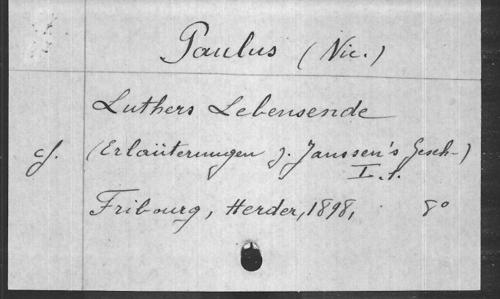 Paulus (Nic.)
Luthers Lebensende
cf. (Erlaüterungen z. Janssen's Gesch.)
I. 1.
Fribourg, Herder, 1898, 8°